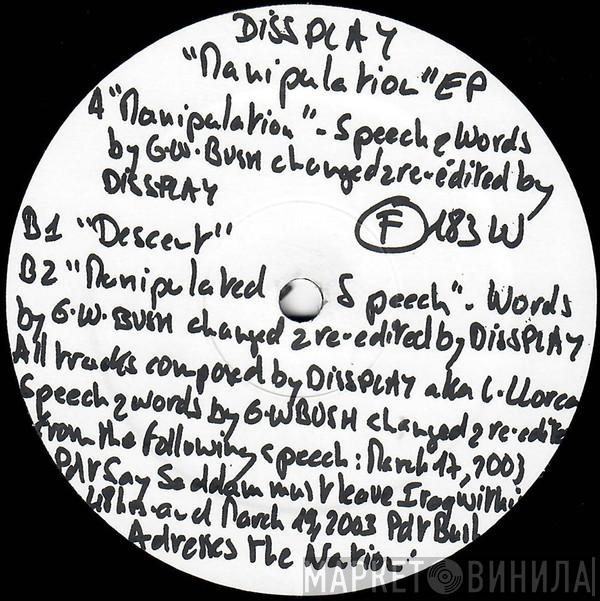 DISSPLAY
"Manipulation" EP
A "Manipulation" - Speech & Words
by G.W. BUSH changed & re-edited by
DISSPLAY
F 183 W
B1 "Descent"
B2 "Manipulated Speech" - Words
by G.W. BUSH changed & re-edited by DISSPLAY
All tracks composed by DISSPLAY aka L. LLorca
Speech & words by G.W BUSH changed & re-edited
from the following speech: March 17, 2003
PdT Say Saddam must leave Iraq within
48h and March 19, 2003 PdT Bush
Adresses the Nation.
МАРКЕТ ВИНИЛА